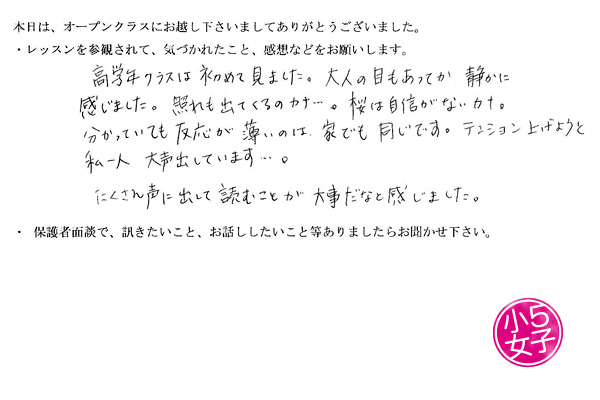 本日は、オープンクラスにお越し下さいましてありがとうございました。
・レッスンを参観されて、気づかれたこと、感想などをお願いします。
高学年クラスは初めて見ました。大人の目もあってか 静かに
感じました。照れも出てくるのカナ…。桜は自信がないカナ。
分かっていても反応が薄いのは、家でも同じです。テンション上げようと
私一人 大声出しています…。
たくさん声に出して読むことが大事だなと感じました。
・ 保護者面談で、訊きたいこと、お話ししたいこと等ありましたらお聞かせ下さい。
小5
女子